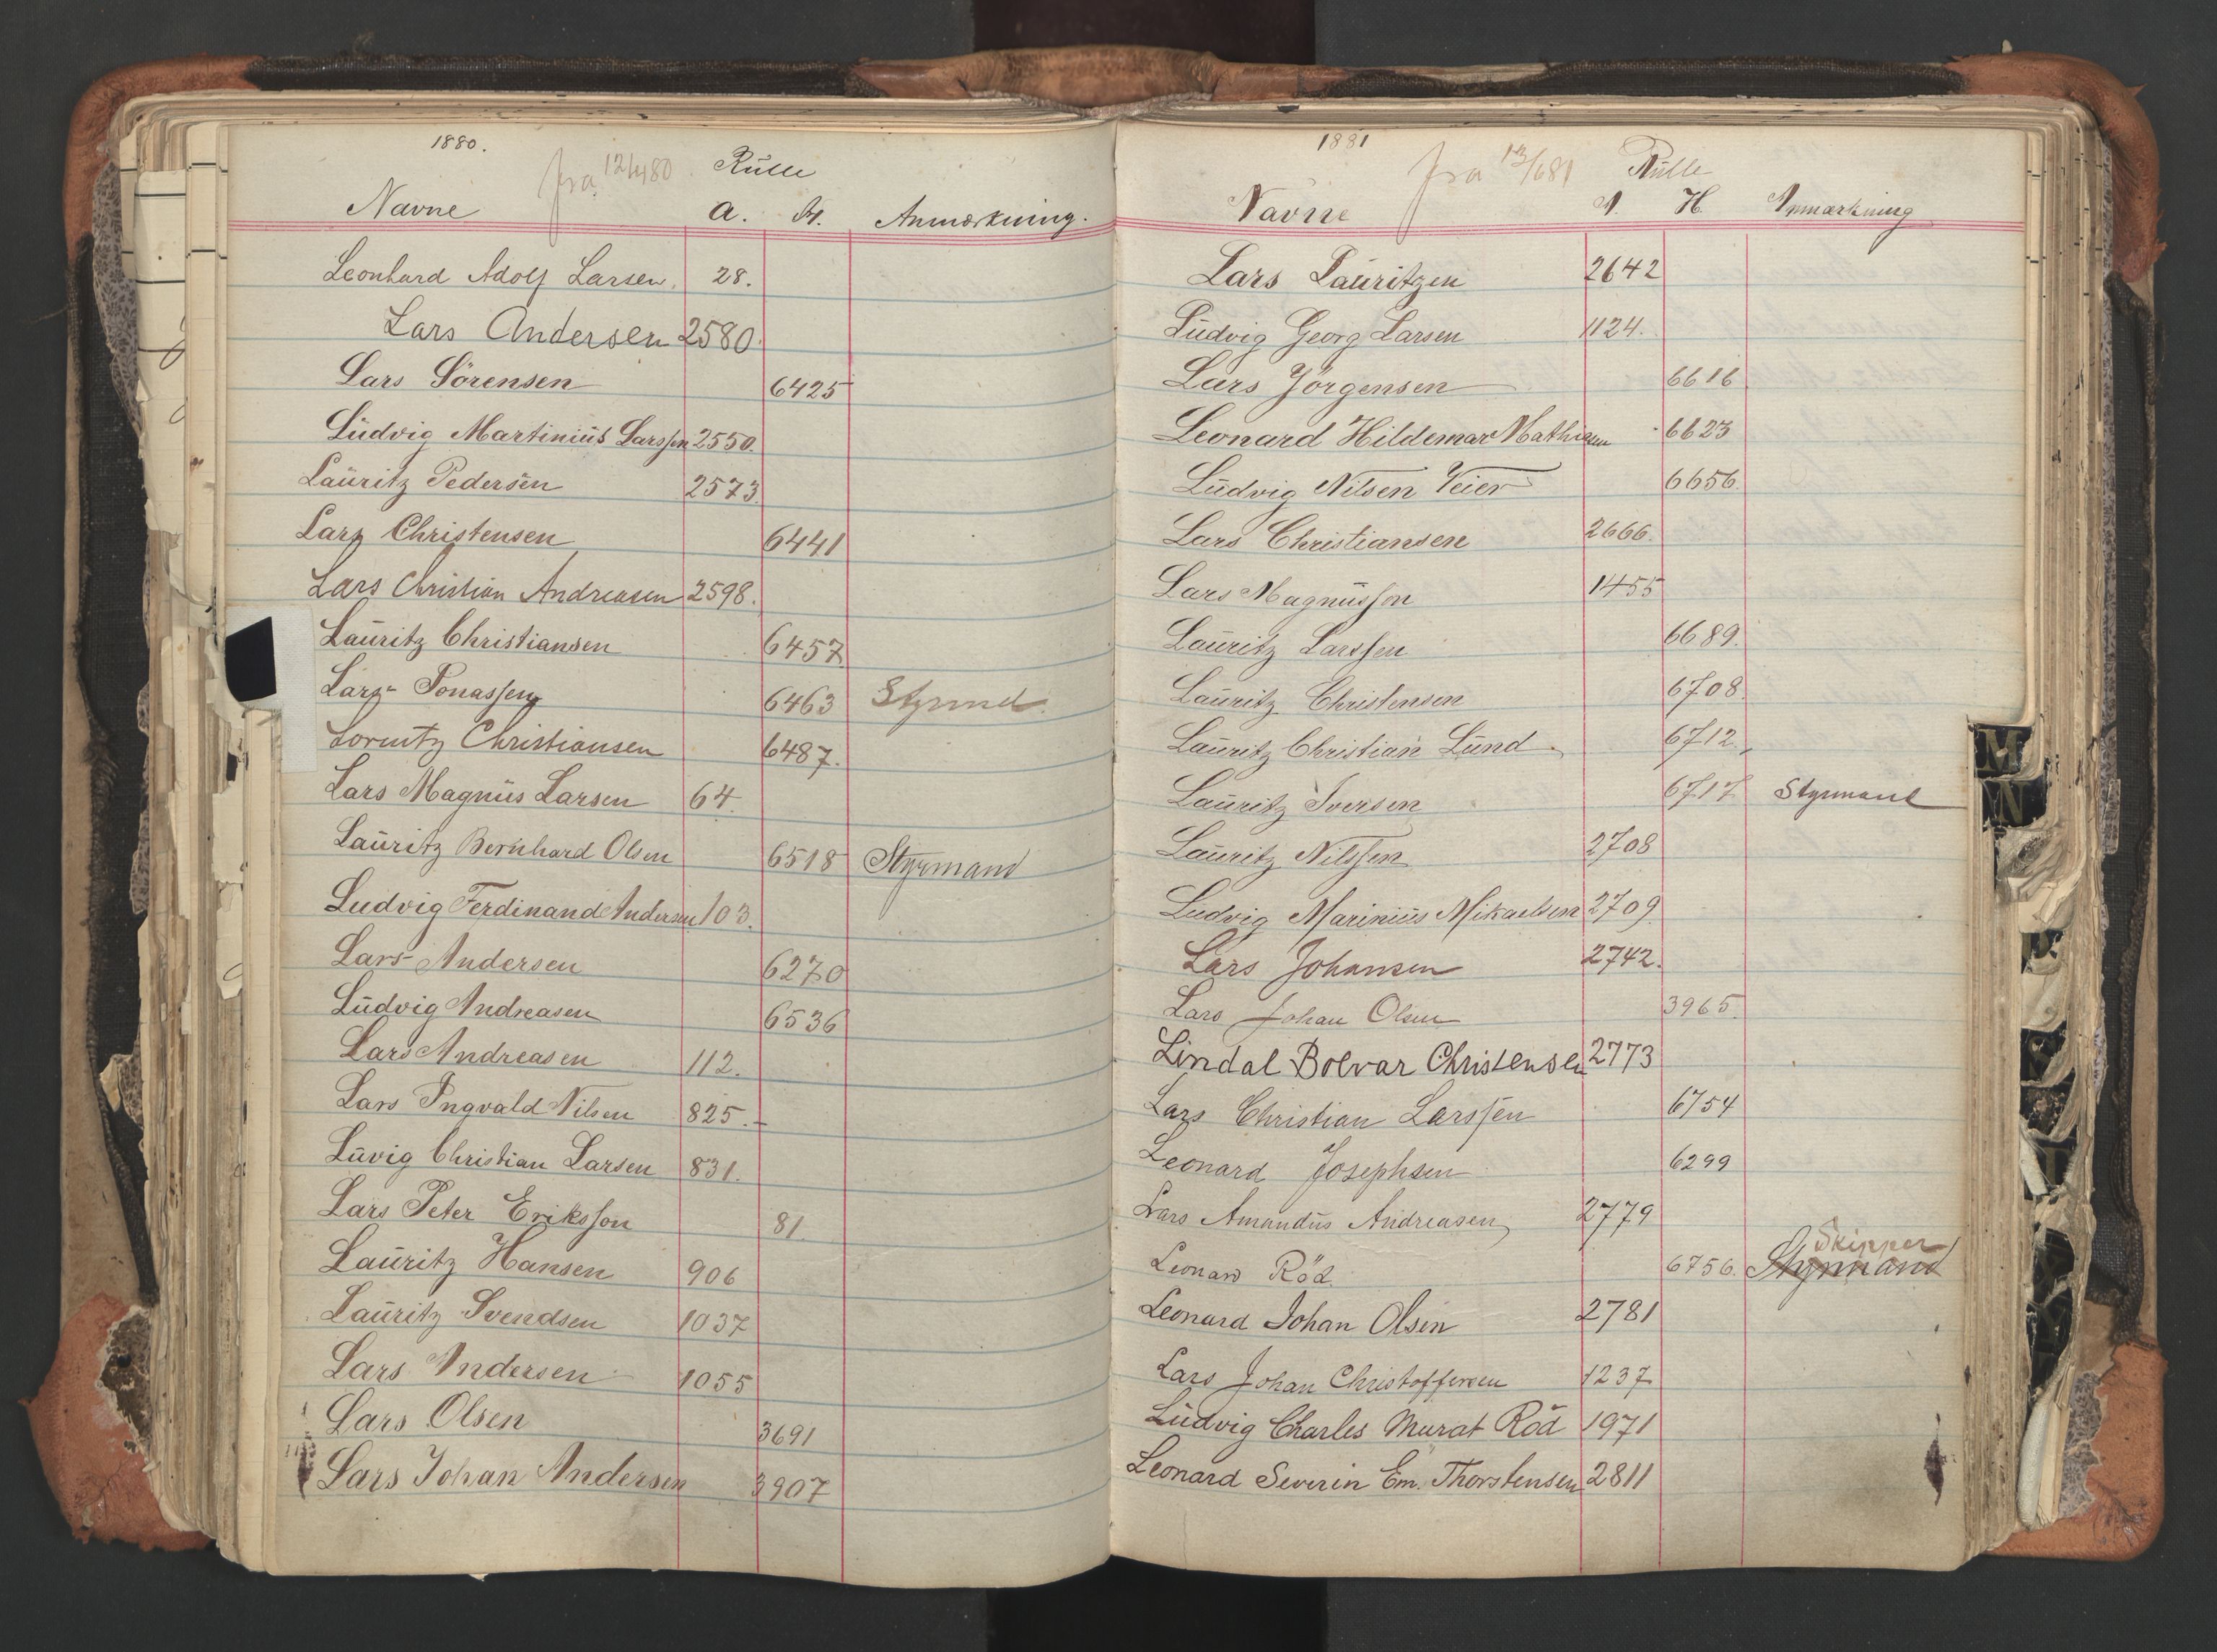 1880.
fra 12/4 80 Rülle
Navne A. H. Anmærkning.
Leonhard Adolf Larsen 28.
Lars Andersen 2580.
Lars Sörensen 6425
Lüdvig Martiniüs Larssen 2550.
Laüritz Pedersen 2573
Lars Christensen 6441
Lars Christian Andreasen 2598.
Laüritz Christiansen 6457.
Lars Jonassen 6463 Styrmd.
Lorentz Christiansen 6487.
Lars Magnüs Larsen 64.
Laüritz Bernhard Olsen 6518 Styrmand
Ludvig Ferdinand Andersen 103.
Lars Andersen 6270
Lüdvig Andreasen 6536
Lars Andreasen 112.
Lars Ingvald Nilsen 825.-
Lüvig Christian Larsen 831.
Lars Peter Eriksson 81.
Laüritz Hansen 906
Laüritz Svendsen 1037
Lars Andersen 1055
Lars Olsen 3691
Lars Johan Andersen 3907
1881
fra 13/6 81 Rülle
Navne A. H. Anmærkning
Lars Laüritzen 2642
Lüdvig Georg Larsen 1124.
Lars Jörgensen 6616
Leonard Hildemar Mathisen 6623
Lüdvig Nilsen Veier 6656.
Lars Christiansen 2666.
Lars Magnüsson 1455
Laüritz Larssen 6689.
Laüritz Christensen 6708.
Laüritz Christian Lünd 6712.
Laüritz Iversen 6717 Styrmand
Laüritz Nilssen 2708
Lüdvig Mariniüs Mikaelsen 2709.
Lars Johansen 2742.
Lars Johan Olsen 3965.
Lindal Bolvar Christensen 2773
Lars Christian Larssen 6754
Leonard Josephsen 6299
Lars Amandüs Andreasen 2779
Skipper
Leonard Röd. 6756. Styrmand
Leonard Johan Olsen 2781
Lars Johan Christoffersen 1237
Lüdvig Charles Murat Röd 1971
Leonard Severin Em. Thorstensen 2811
M
N